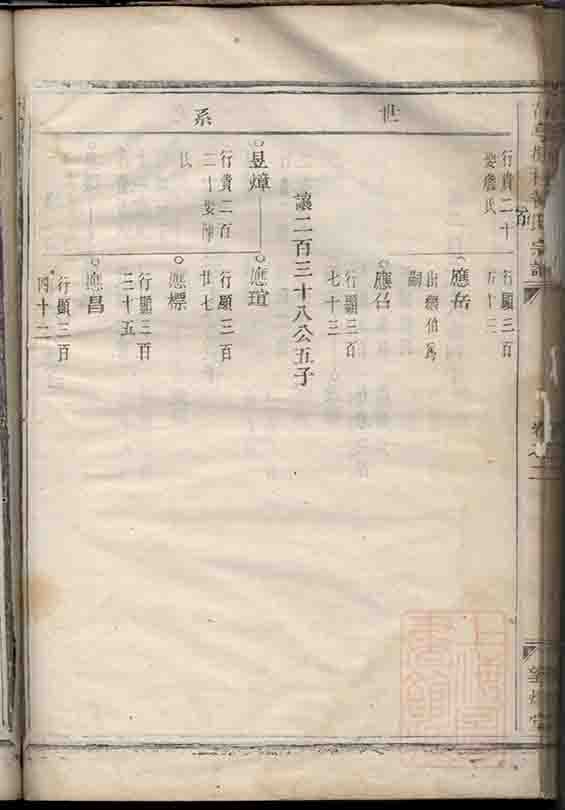 世系
行貴二十
娶詹氏
行顯三百
應岳
出繼伯為
嗣
應召
行顯三百
七十三
讓二百三十八公五子
昱煒
行貴二百
應瑄
行顯三百
廿七
應標
行顯三百
三十五
應昌
行顯三百
四十二
宗譜
卷之二